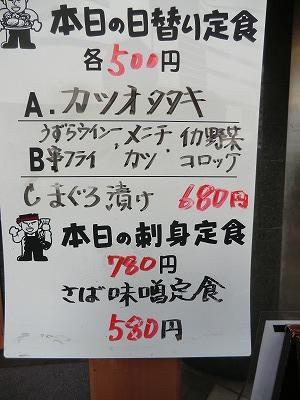 本日の日替り定食
各500円
A. カツオタタキ
うずらウインー、メンチ・イカ野菜
B串フライ カツ コロッケ
Cまぐろ漬け 680円
本日の刺身定食
780円
さば味噌定食
580円